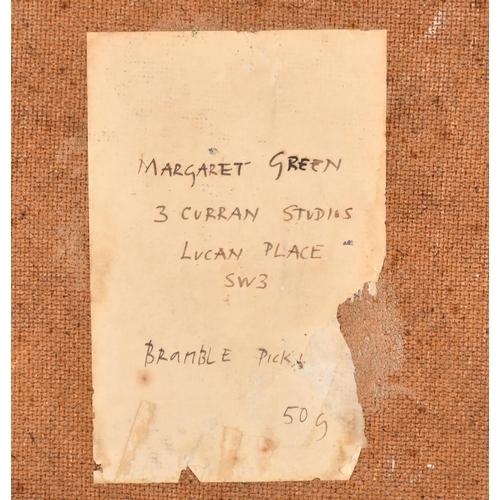 MARGARET GREEN
3 CURRAN STUDIOS
LUCAN PLACE
SW3
BRAMBLE PICK
50 g